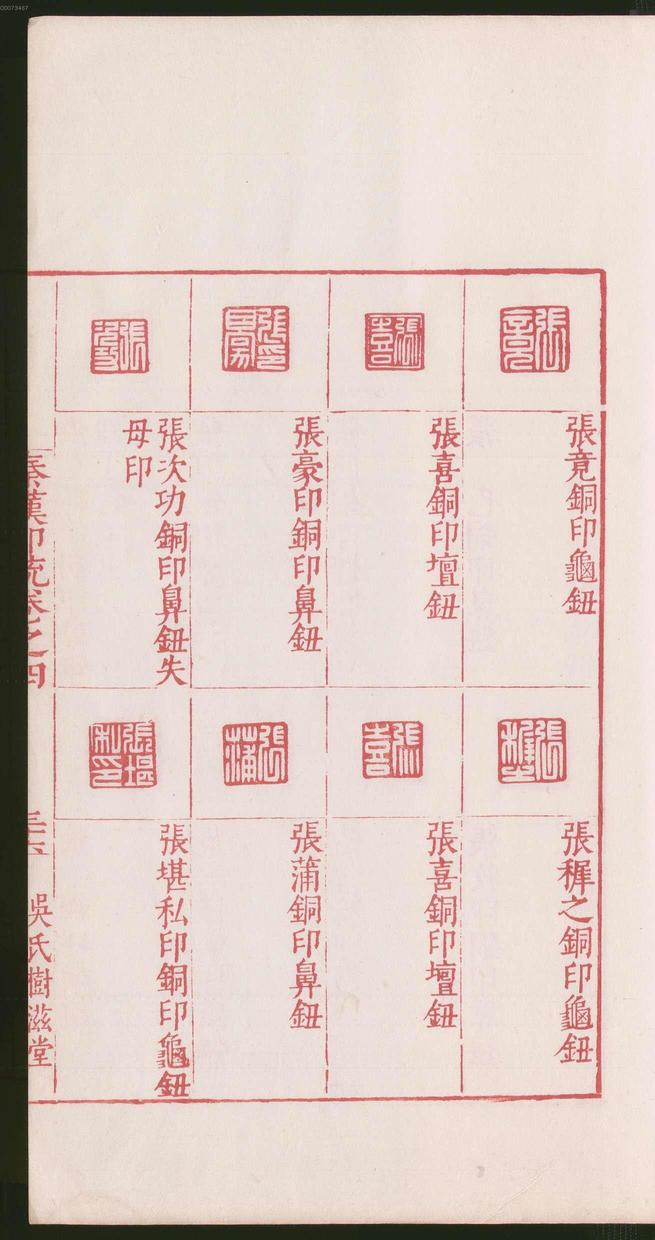 張竟銅印龜鈕
張喜銅印壇鈕
張豪印銅印鼻鈕
張次功銅印鼻鈕失
母印
張穉之銅印龜鈕
張喜銅印壇鈕
張蒲銅印鼻鈕
張堪私印銅印龜鈕
秦漢印統卷之四
吳氏樹滋堂
00073467